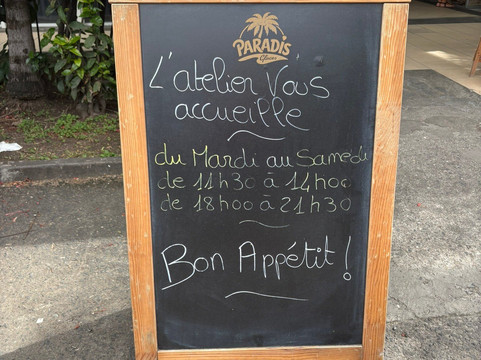 PARADIS
Glaces
L'atelier Vous
accueille
du Mardi au Samedi
de 11h30 à 14h00
de 18h00 à 21h30
Bon Appétit !